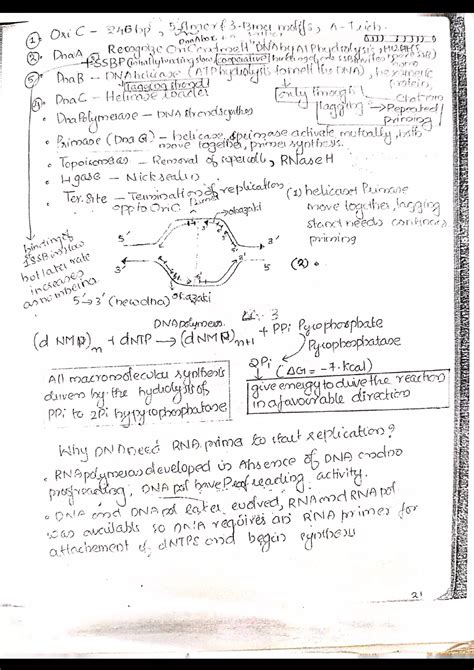 ① Ori C - 246bp, 5 9mer & 3 13mer motifs, A-T rich
2. DnaA - Recognize OriC and melt DNA by ATP hydrolysis, HU/IHFs
+ SSBP (cooperative)
DnaB - DNA helicase (ATP hydrolysis to melt the DNA), hexameric protein,
lagging strand
④ DnaC - Helicase loader
only 1 through lagging → Repeated priming
• Dna Polymerase - DNA strand synthesis
• Primase (Dna G) - helicase, & primase activate mutually, both
move together, primer synthesis.
• Topoisomerase - Removal of supercoils, RNase H
• Ligase - Nick sealing
• Ter. site - Termination of replication
opp to OriC
(1) helicase & Primase
move together, lagging
stand needs continous
priming
okazaki
5'
3'
3'
5'
(2) •
binding of
SSB is slow
but later rate
increases
as number inc
5' → 3' (new dna) okazaki
(dNMP)m + dNTP DNA polymerase → (dNMP)m+1 + PPi Pyrophosphate
Pyrophosphatase
2Pi (ΔG = -7 kcal)
All macromolecular synthesis
driven by the hydrolysis of
PPi to 2Pi by pyrophosphatase
give energy to drive the reaction
in a favourable direction
Why DNA need RNA primer to start replication?
• RNA polymerase developed in Absence of DNA and no
proofreading, DNA pol have Proof reading activity.
• DNA and DNA pol later evolved, RNA and RNA pol
was available so DNA requires an RNA primer for
attachement of dNTPS and begin synthesis
21